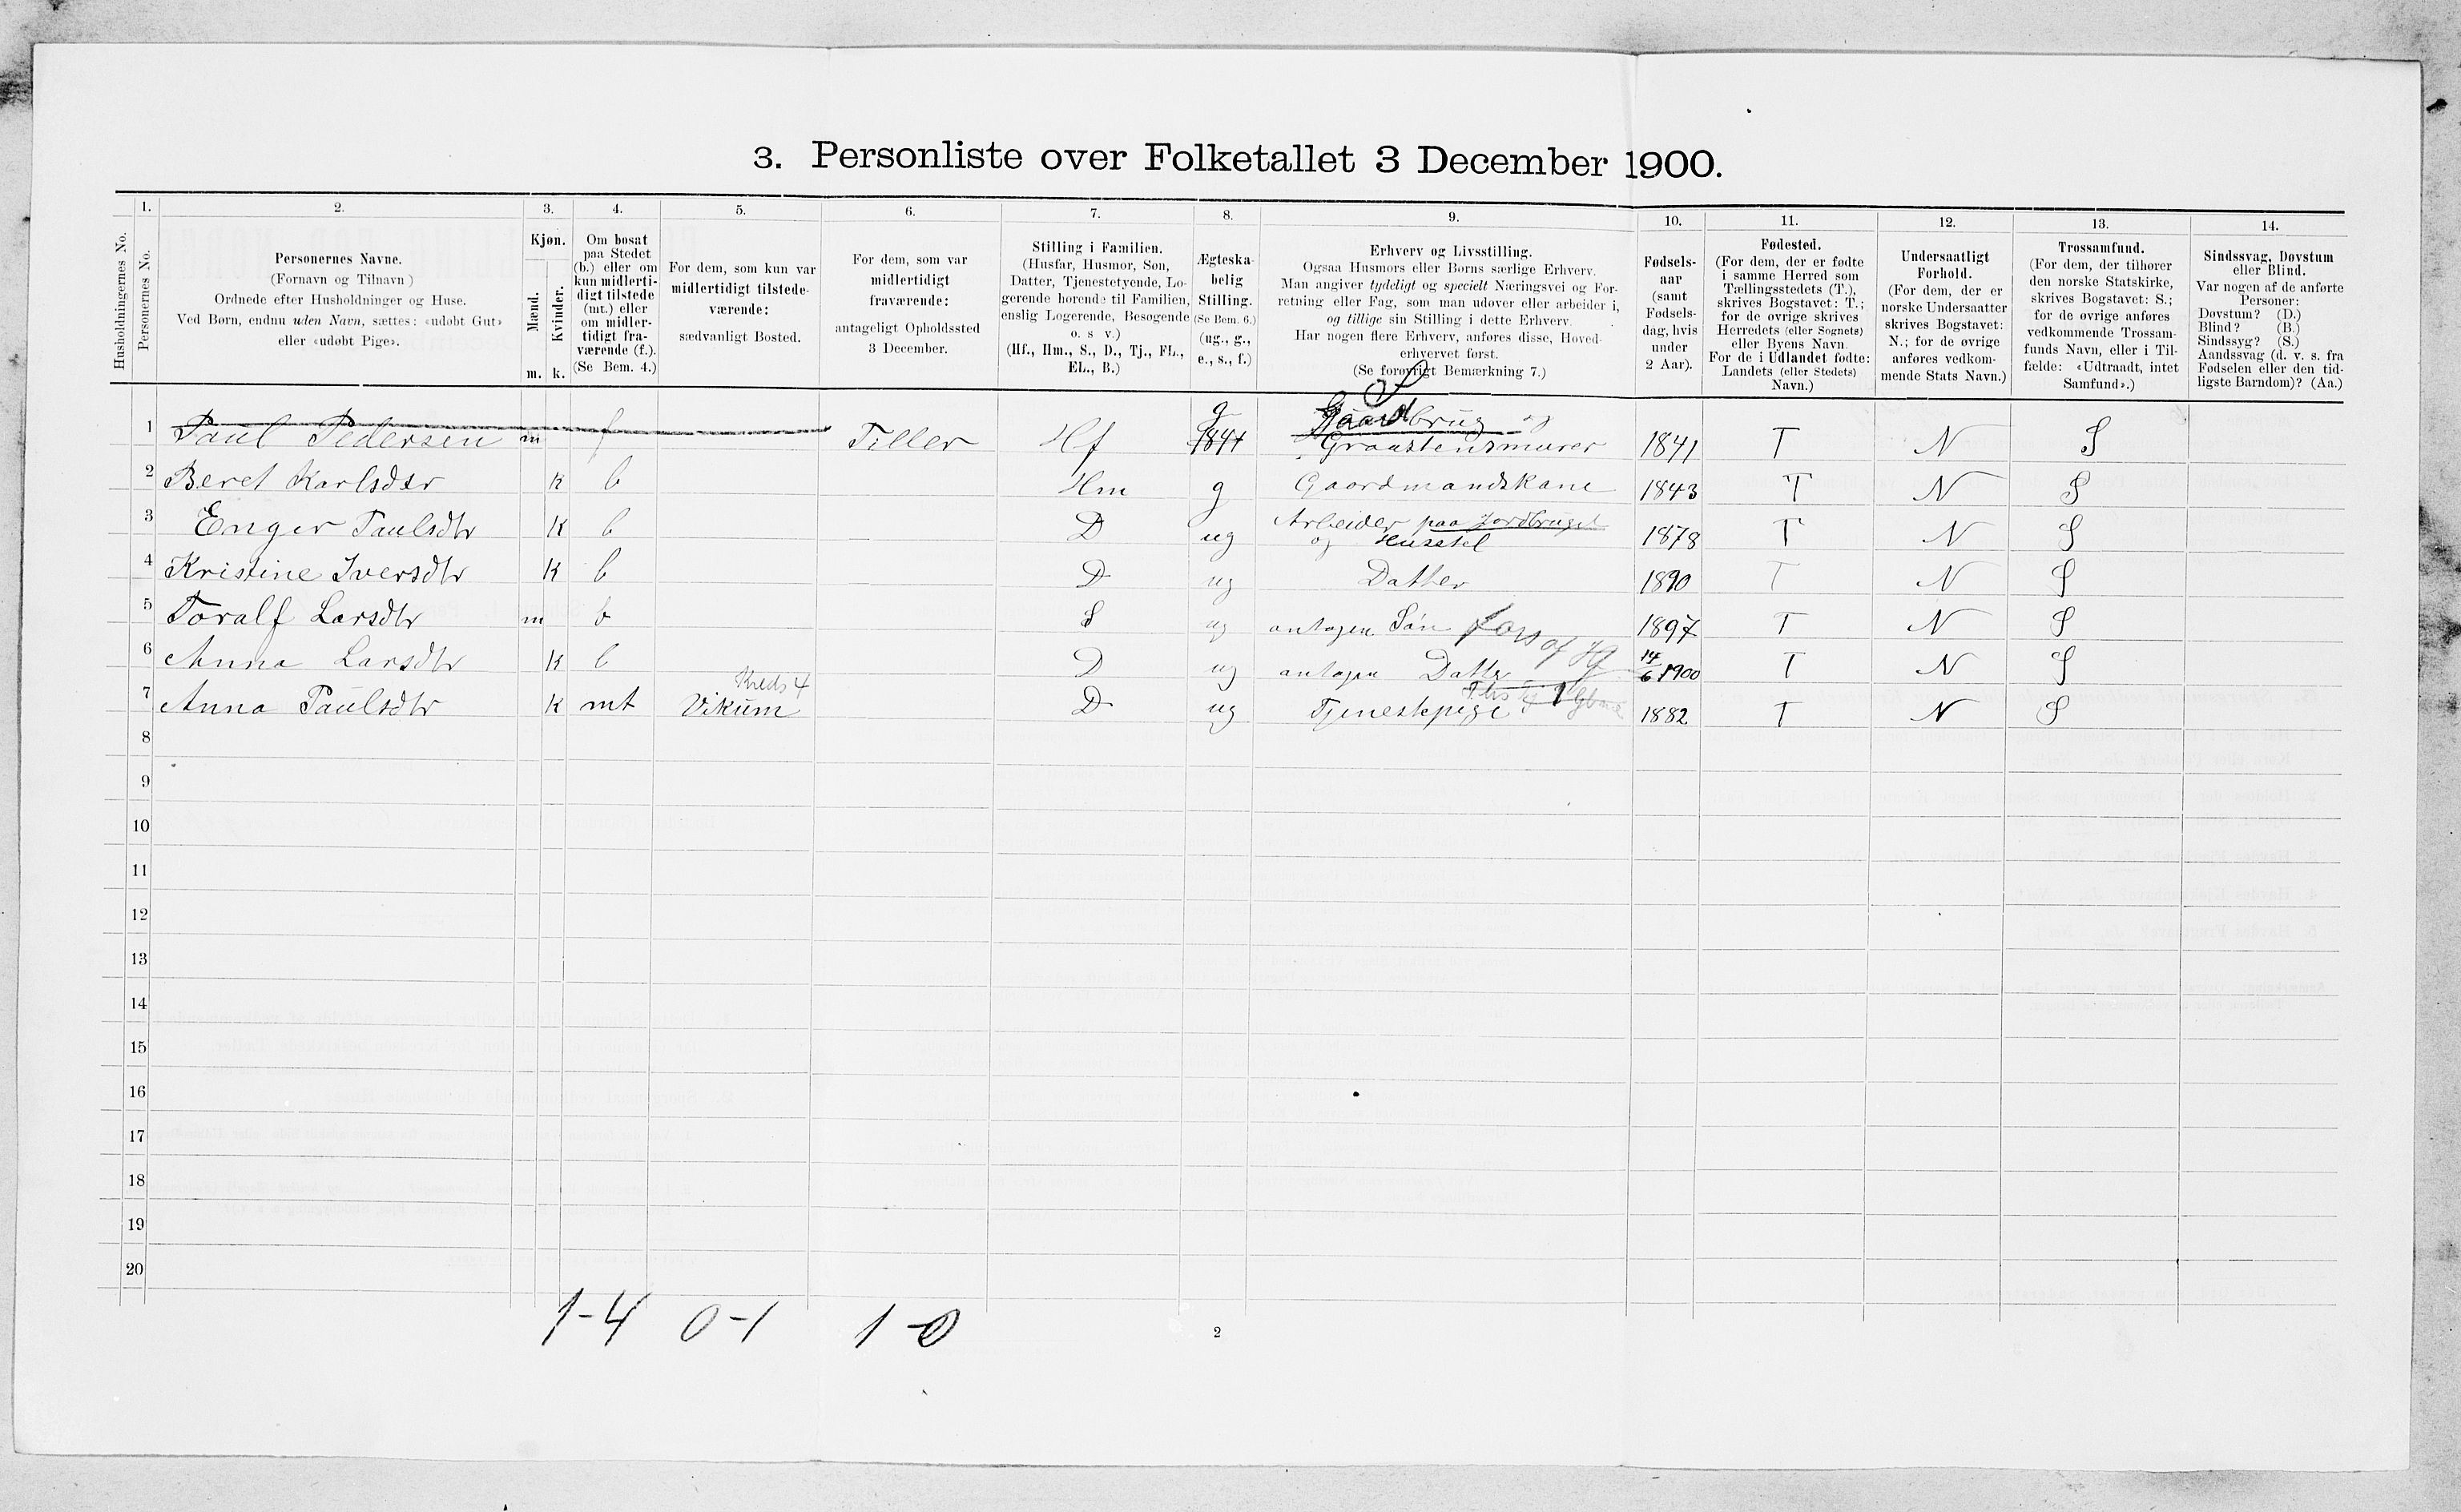 3. Personliste over Folketallet 3 December 1900.
Husholdningernes No.
1. Personernes No.
2. Personernes Navne.
(Fornavn og Tilnavn)
Ordnede efter Husholdninger og Huse.
Ved Børn, endnu uden Navn, sættes: «udøbt Gut»
eller «udøbt Pige».
3. Kjøn.
Mænd. m.
Kvinder. k.
4. Om bosat
paa Stedet
(b.) eller om
kun midlerti-
digt tilstede
(mt.) eller
om midler-
tidigt fra-
værende (f.).
(Se Bem. 4.)
5. For dem, som kun var
midlertidigt tilstede-
værende:
sædvanligt Bosted.
6. For dem, som var
midlertidigt
fraværende:
antageligt Opholdssted
3 December.
7. Stilling i Familien.
(Husfar, Husmor, Søn,
Datter, Tjenestetyende, Lo-
gerende hørende til Familien,
enslig Logerende, Besøgende
o. s v.)
(Hf., Hm., S., D., Tj., FL.,
EL., B.)
8. Ægteska-
belig
Stilling.
(Se Bem. 6.)
(ug., g.,
e., s., f.)
9. Erhverv og Livsstilling.
Ogsaa Husmors eller Børns særlige Erhverv.
Man angiver tydeligt og specielt Næringsvei og For-
retning eller Fag, som man udøver eller arbeider i,
og tillige sin Stilling i dette Erhverv.
Har nogen flere Erhverv, anføres disse, Hoved-
erhvervet først.
(Se forøvrigt Bemærkning 7.)
10. Fødsels-
aar
(samt
Fødsels-
dag, hvis
under
2 Aar).
11. Fødested.
(For dem, der er fødte
i samme Herred som
Tællingsstedets (T.),
skrives Bogstavet: T.;
for de øvrige skrives
Herredets (eller Sognets)
eller Byens Navn.
For de i Udlandet fødte:
Landets (eller Stedets)
Navn.)
12. Undersaatligt
Forhold.
(For dem, der er
norske Undersaatter
skrives Bogstavet:
N.; for de øvrige
anføres vedkom-
mende Stats Navn.)
13. Trossamfund.
(For dem, der tilhører
den norske Statskirke,
skrives Bogstavet: S.;
for de øvrige anføres
vedkommende Trossam-
funds Navn, eller i Til-
fælde: «Udtraadt, intet
Samfund».)
14. Sindssvag, Døvstum
eller Blind.
Var nogen af de anførte
Personer:
Døvstum? (D.)
Blind? (B.)
Sindssyg? (S.)
Aandssvag (d. v. s. fra
Fødselen eller den tid-
ligste Barndom)? (Aa.)
1 Paul Pedersen m f Tiller Hf 1841 g S Gaardbrug og Graastensmurer 1841 T N S
2 Beret Karlsdtr k b Hm g Gaardmandskone 1843 T N S
3 Enger Paulsdtr k b D ug Arbeider paa Jordbruget og Husstel 1878 T N S
4 Kristine Iversdtr k b D ug Datter 1890 T N S
5 Toralf Larsdtr m b S ug antagen Søn fors af Hf 1897 T N S
6 Anna Larsdtr k b D ug antagen Dattr 14/6 1900 T N S
7 Anna Paulsdtr k mt Kreds 4 Vikum D ug Tjenestepige 1882 T N S
8
9
10
11
12
13
14
15
16
17
18
19
20
1-4 0-1 1-0
2